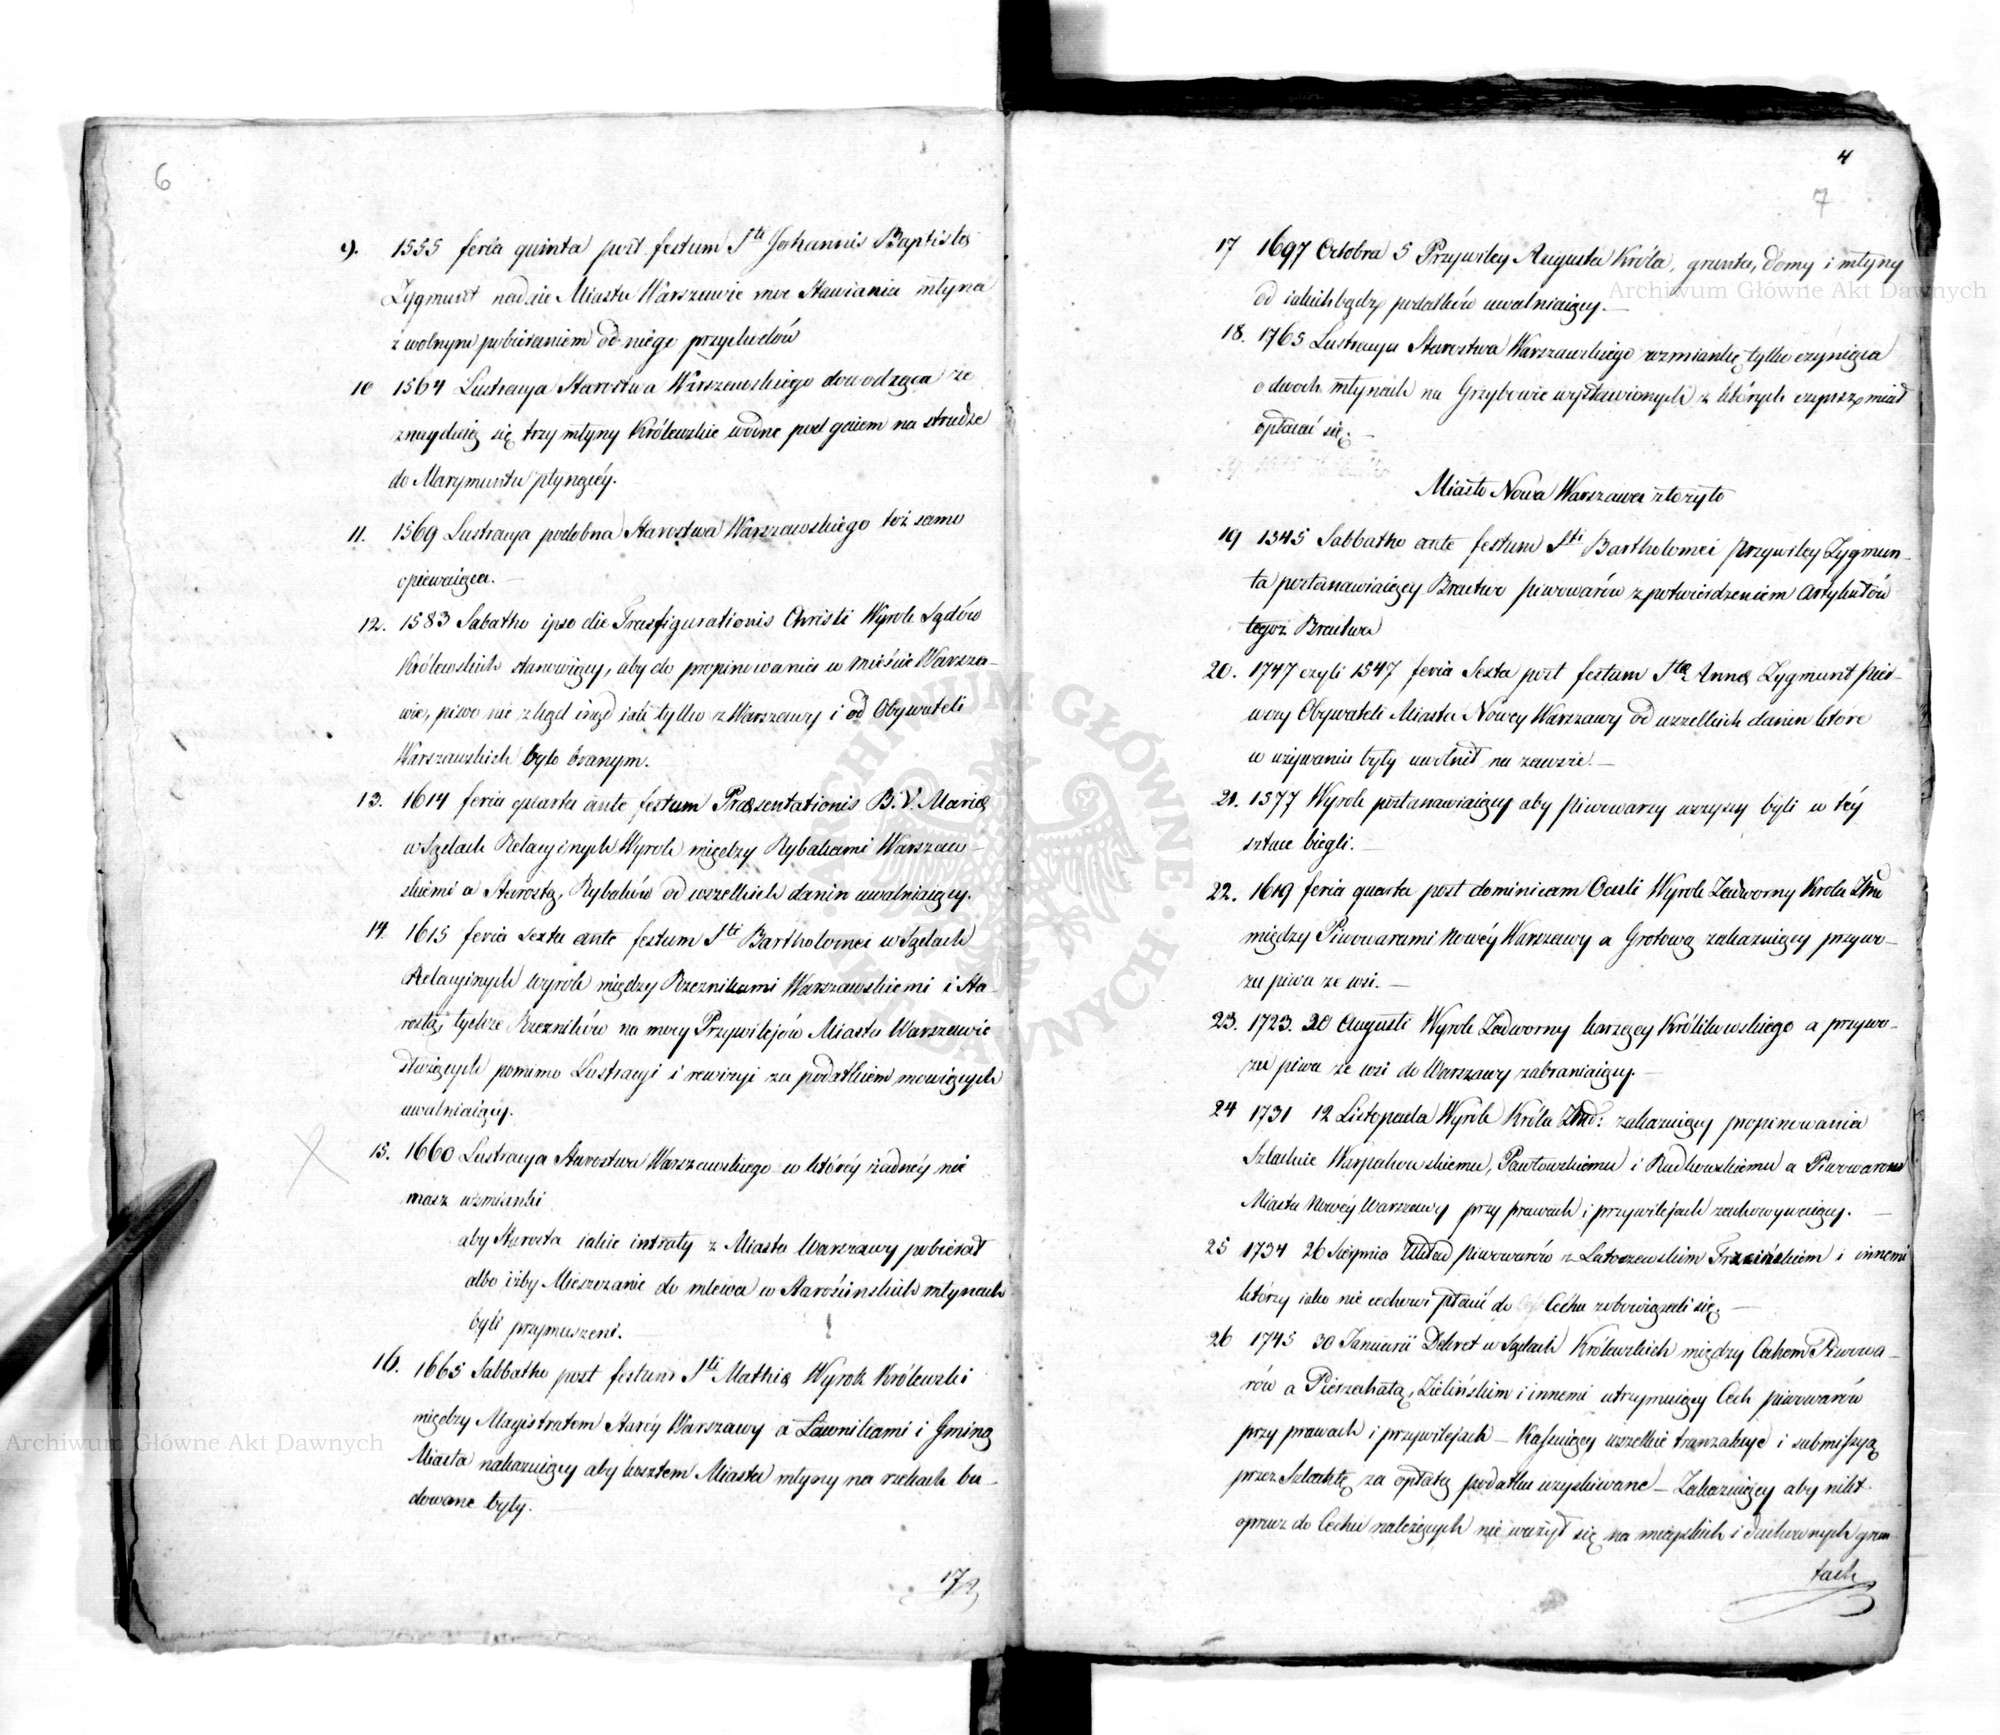 6
9. 1555 feria quinta post festum Sti Johannis Baptistæ
Zygmunt nadaie Miastu Warszawie moc Stawiania młyna
z wolnym pobieraniem od niego przychodów
10 1564 Lustracya Starostwa Warszawskiego dowodząca że
znayduią się trzy młyny Królewskie wodne pod gaiem na strudze
do Marymuntu płynącéy.
11. 1569 Lustracya podobna Starostwa Warszawskiego toż samo
opiewaiąca.
12. 1583 Sabatho ipso die Trasfigurationis Christi Wyrok Sądów
Królewskich stanowiący, aby do propinowania w mieście Warsza-
wie, piwo nie zkąd inąd iak tylko z Warszawy i od Obywateli
Warszawskich było branym.
13. 1614 feria quarta ante festum Præsentationis B. V. Mariæ
w Sądach Relacyinych Wyrok między Rybakami Warszaw-
skiemi a Starostą, Rybaków od wszelkich danin uwalniaiący.
14 1615 feria sexta ante festum Sti Bartholomei w Sądach
Relacyinych wyrok między Rzeznikami Warszawskiemi i Sta-
rostą, tychże Rzezników na mocy Przywilejów Miastu Warszawie
służących pomimo Lustracyi i rewizyi za podatkiem mowiących
uwalniaiący.
15. 1660 Lustracya Starostwa Warszawskiego w któréy żadnéy nie
masz wzmianki
aby Starosta iakie intraty z Miasta Warszawy pobierał
albo iżby Mieszczanie do mlewa w Starościńskich młynach
byli przymuszeni.
16. 1665 Sabbatho post festum Sti Mathiæ Wyrok Królewski
między Magistratem Staréy Warszawy a Ławnikami i Gminą
Miasta nakazuiący aby kosztem Miasta młyny na rzekach bu-
dowane były.
17
4
7
17 1697 Octobra 5 Przywiley Augusta Króla, grunta, domy i młyny
od iakichbądź podatków uwalniaiący.
18. 1765 Lustracya Starostwa Warszawskiego wzmiankę tylko czyniąca
o dwoch młynach na Grzybowie wystawionych z których czynsz miał
opłacać się.
Miasto Nowa Warszawa złożyło
19 1545 Sabbatho ante festum Sti Bartholomei Przywiley Zygmun-
ta postanawiaiący Bractwo piwowarów z potwierdzeniem Artykułów
tegoż Bractwa
20. 1747 czyli 1547 feria Sexta post festum Stæ Annæ Zygmunt pier-
wszy Obywateli Miasta Nowey Warszawy od wszelkich danin które
w używaniu były uwolnił na zawsze.
21. 1577 Wyrok postanawiaiący aby piwowarzy wszyscy byli w téy
sztuce biegli.
22. 1619 feria quarta post dominicam Oculi Wyrok Zadworny Krola Zmu
między Piwowarami Nowéy Warszawy a Grotową zakazuiący przywo-
zu piwa ze wsi.
23. 1723. 20 Augusti Wyrok Zadworny karzący Królikowskiego a przywo-
zu piwa ze wsi do Warszawy zabraniaiący.
24 1731 12 Listopada Wyrok Króla zakazuiący propinowania
Szlachcie Warpechowskiemu, Pawłowskiemu i Radkowskiemu a Piwowarom
Miasta Nowéy Warszawy przy prawach i przywilejach zachowywaiący.
25 1734 26 Sierpnia Układ piwowarów z Latoszewskim Trzcińskiem i innemi
którzy iako nie cechowi płacić do Cechu zobowiązali się.
26 1745 30 Januarii Dekret w Sądach Królewskich między Cechem Piwowa-
rów a Pierzchałą, Zielińskim i innemi utrzymuiący Cech piwowarów
przy prawach i przywilejach - Kassuiący wszelkie tranzakcye i submissyą
przez Szlachtę za opłatą podatku uzyskiwane - Zakazuiący aby nikt
oprucz do Cechu należących nie ważył się na mieyskich i duchownych grun-
tach
Archiwum Główne Akt Dawnych
Archiwum Główne Akt Dawnych
ARCHIWUM GŁÓWNE · AKT DAWNYCH ·